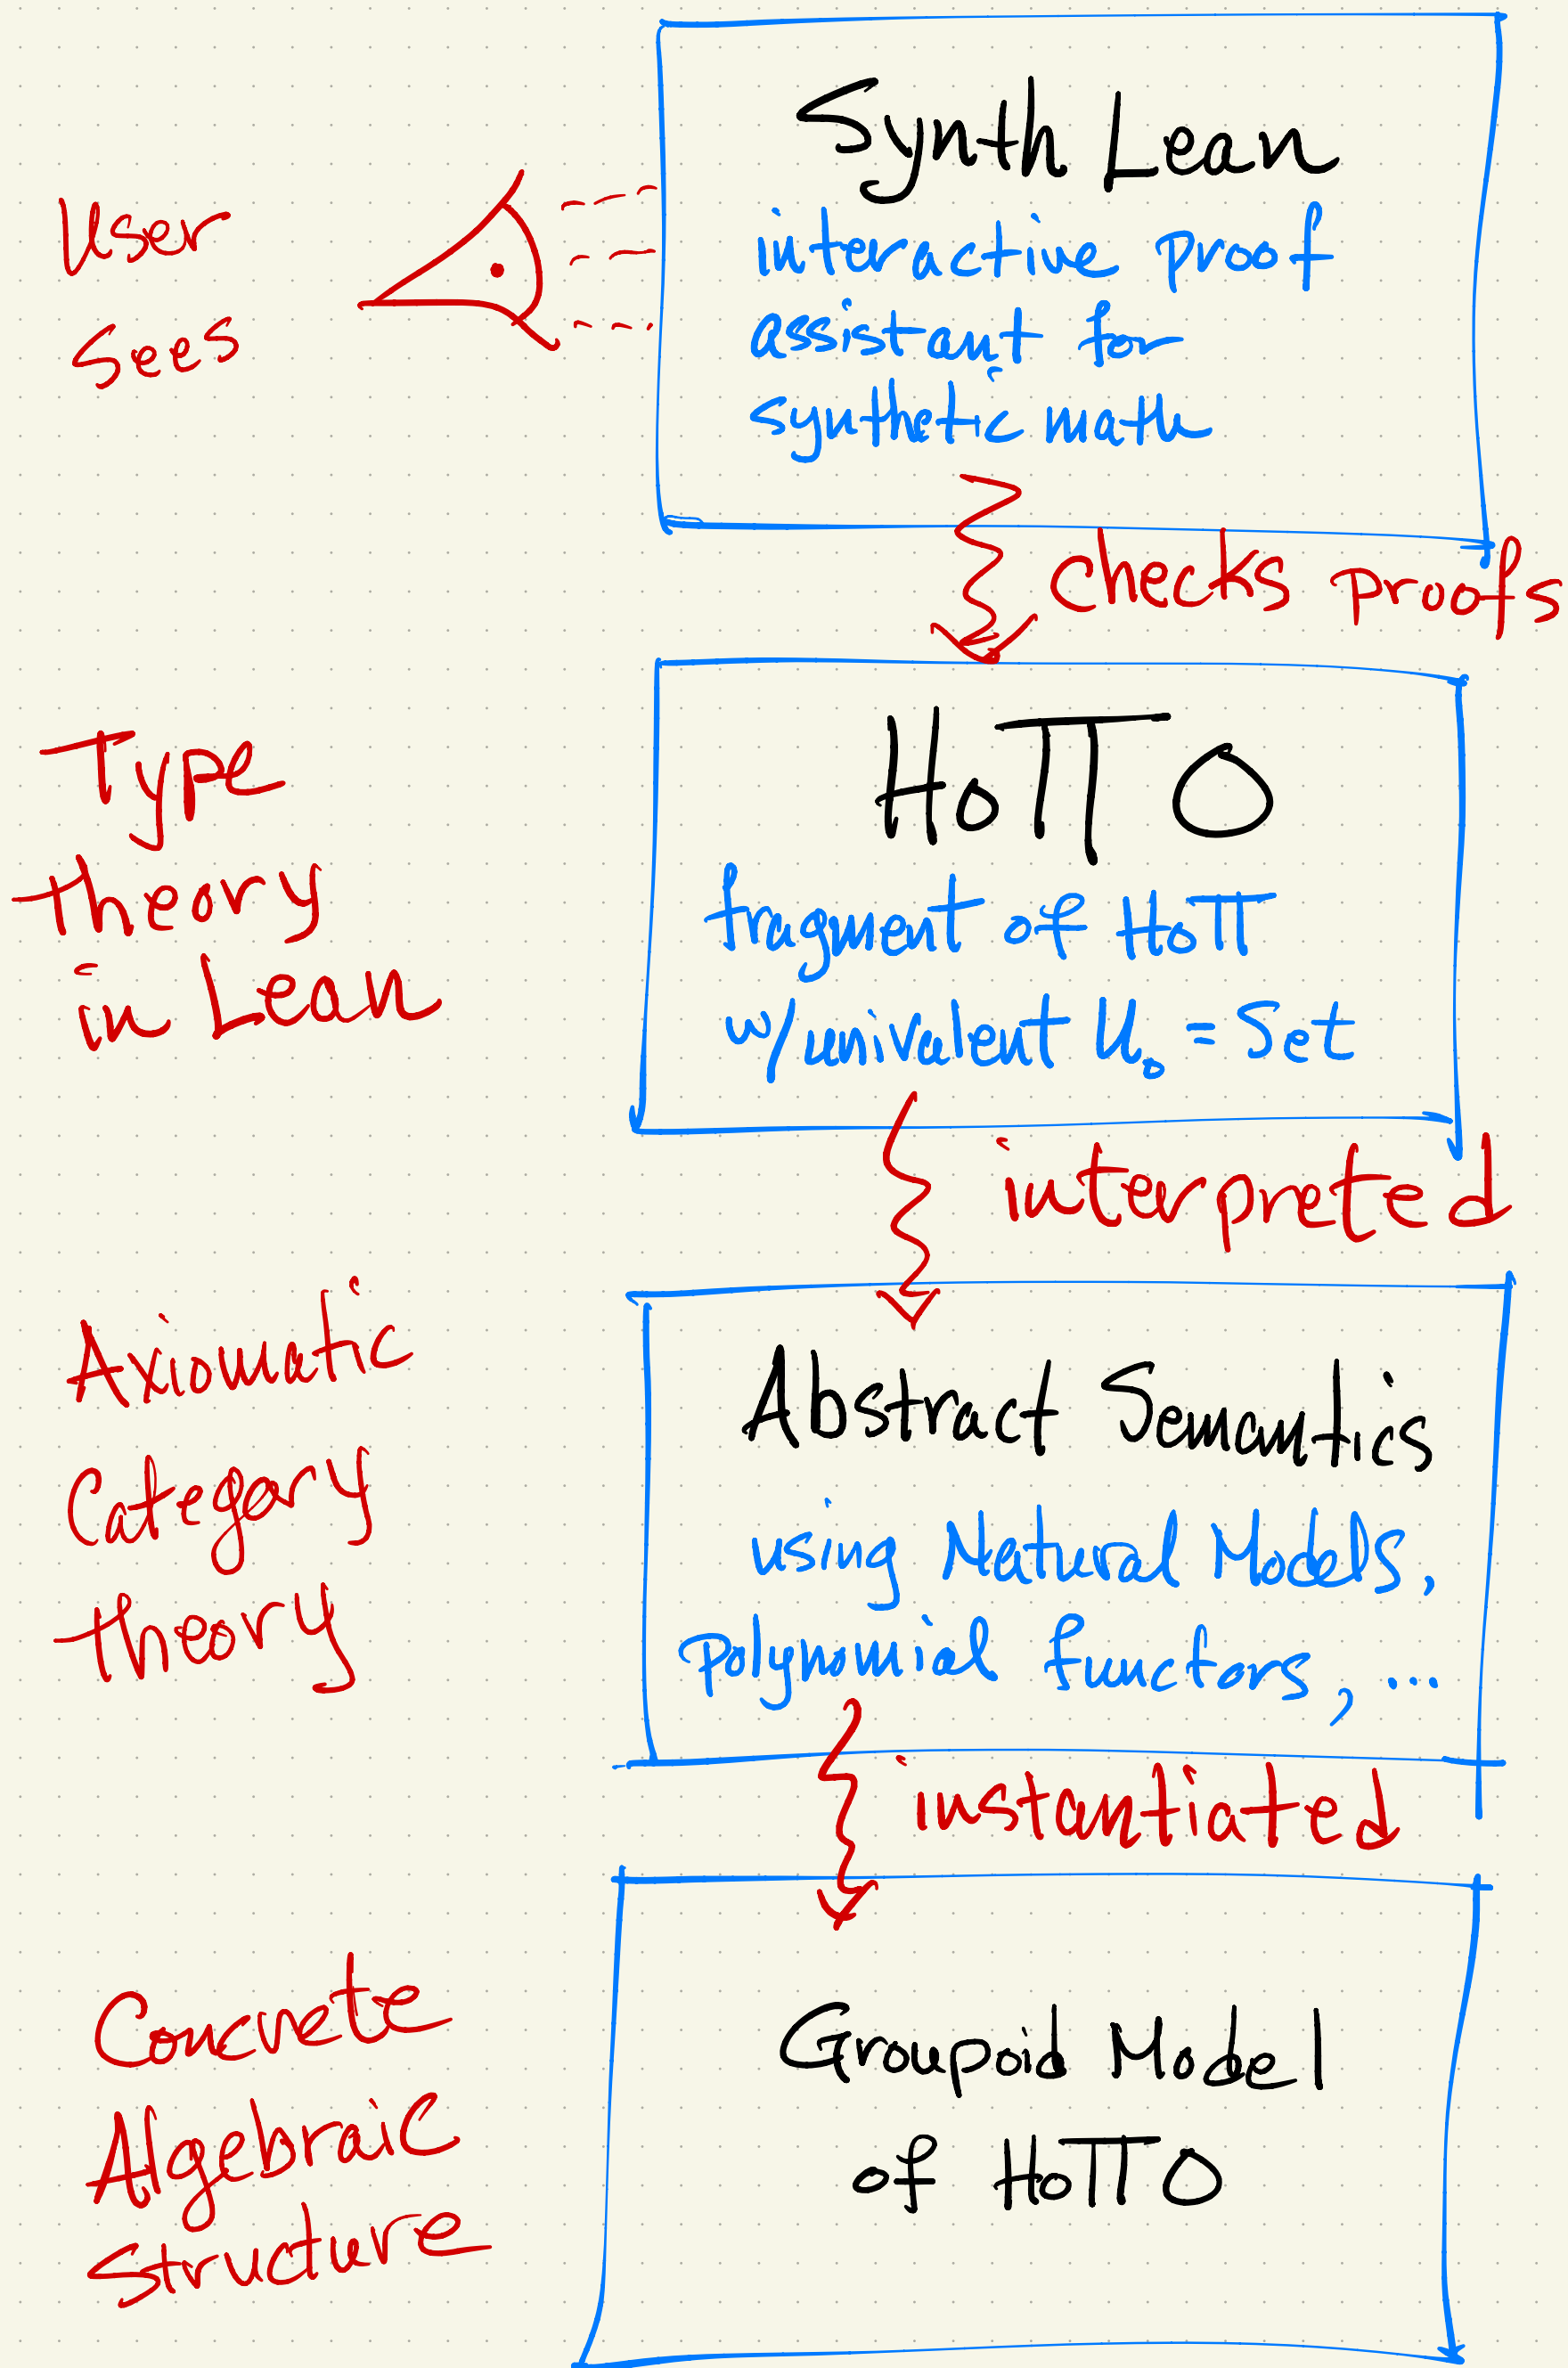 Synth Lean
User
Sees
interactive proof
assistant for
synthetic math
checks proofs
Type
theory
in Lean
HoTT O
fragment of HoTT
w/univalent U₀ = Set
interpreted
Axiomatic
Category
theory
Abstract Semantics
using Natural Models,
polynomial functors, ...
instantiated
Concrete
Algebraic
Structure
Groupoid Model
of HoTT O